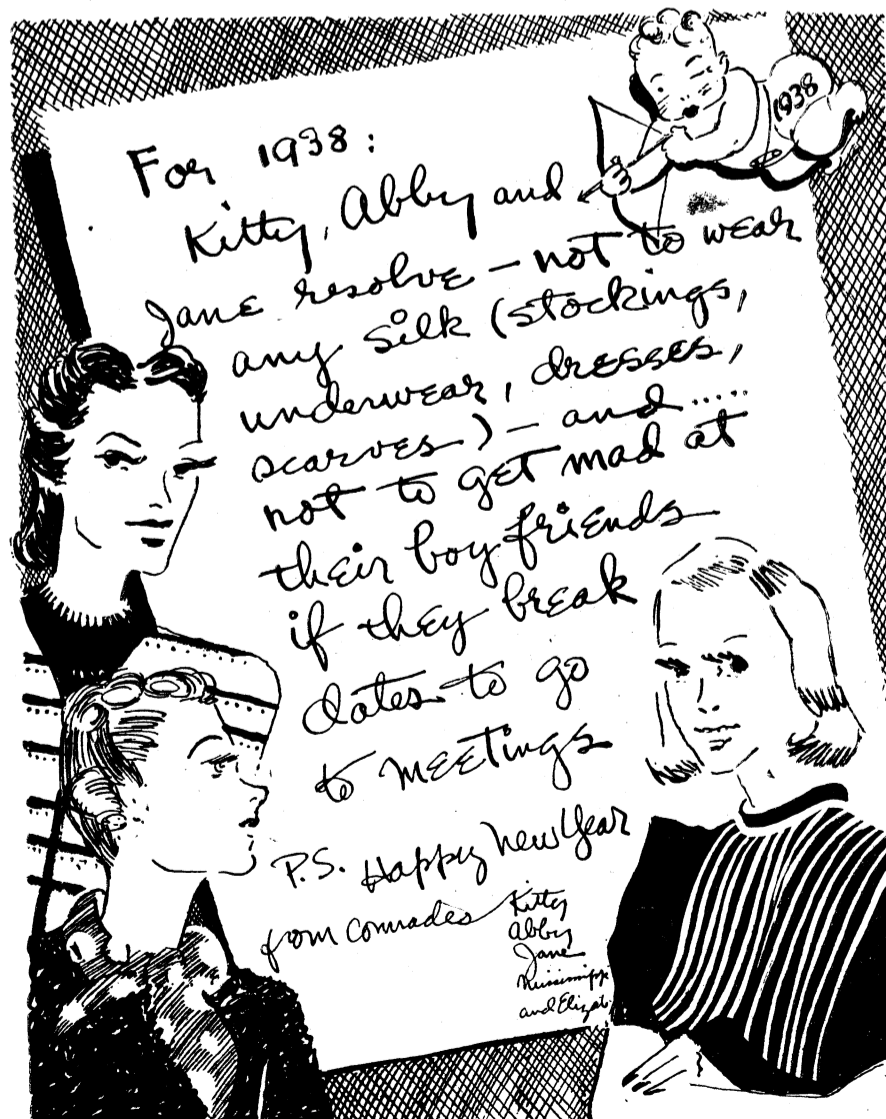 1938
For 1938:
Kitty, Abby and
Jane resolve – not to wear
any silk (stockings,
underwear, dresses,
scarves) – and .....
not to get mad at
their boy friends
if they break
dates to go
to meetings
P.S. Happy New Year
from comrades Kitty
Abby
Jane
Mississippi
and Elizab